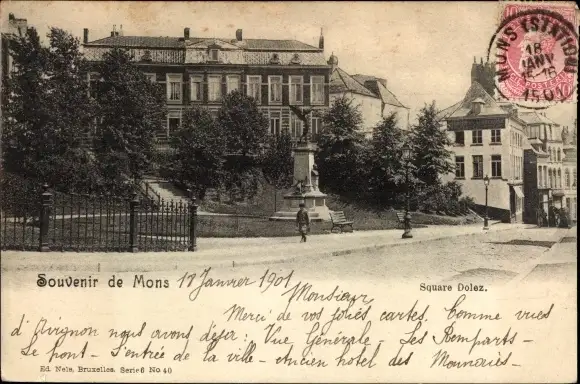 MONS (STATION)
18
JANV
15-16
1901
Souvenir de Mons 17 Janvier 1901
Square Dolez.
Monsieur
Merci de vos jolies cartes. Comme vues
d'Avignon nous avons déjà: Vue Générale - Les Remparts -
Le pont - L'entrée de la ville - Ancien hotel des Monnaies -
Ed. Nels, Bruxelles. Serie 6 No 40